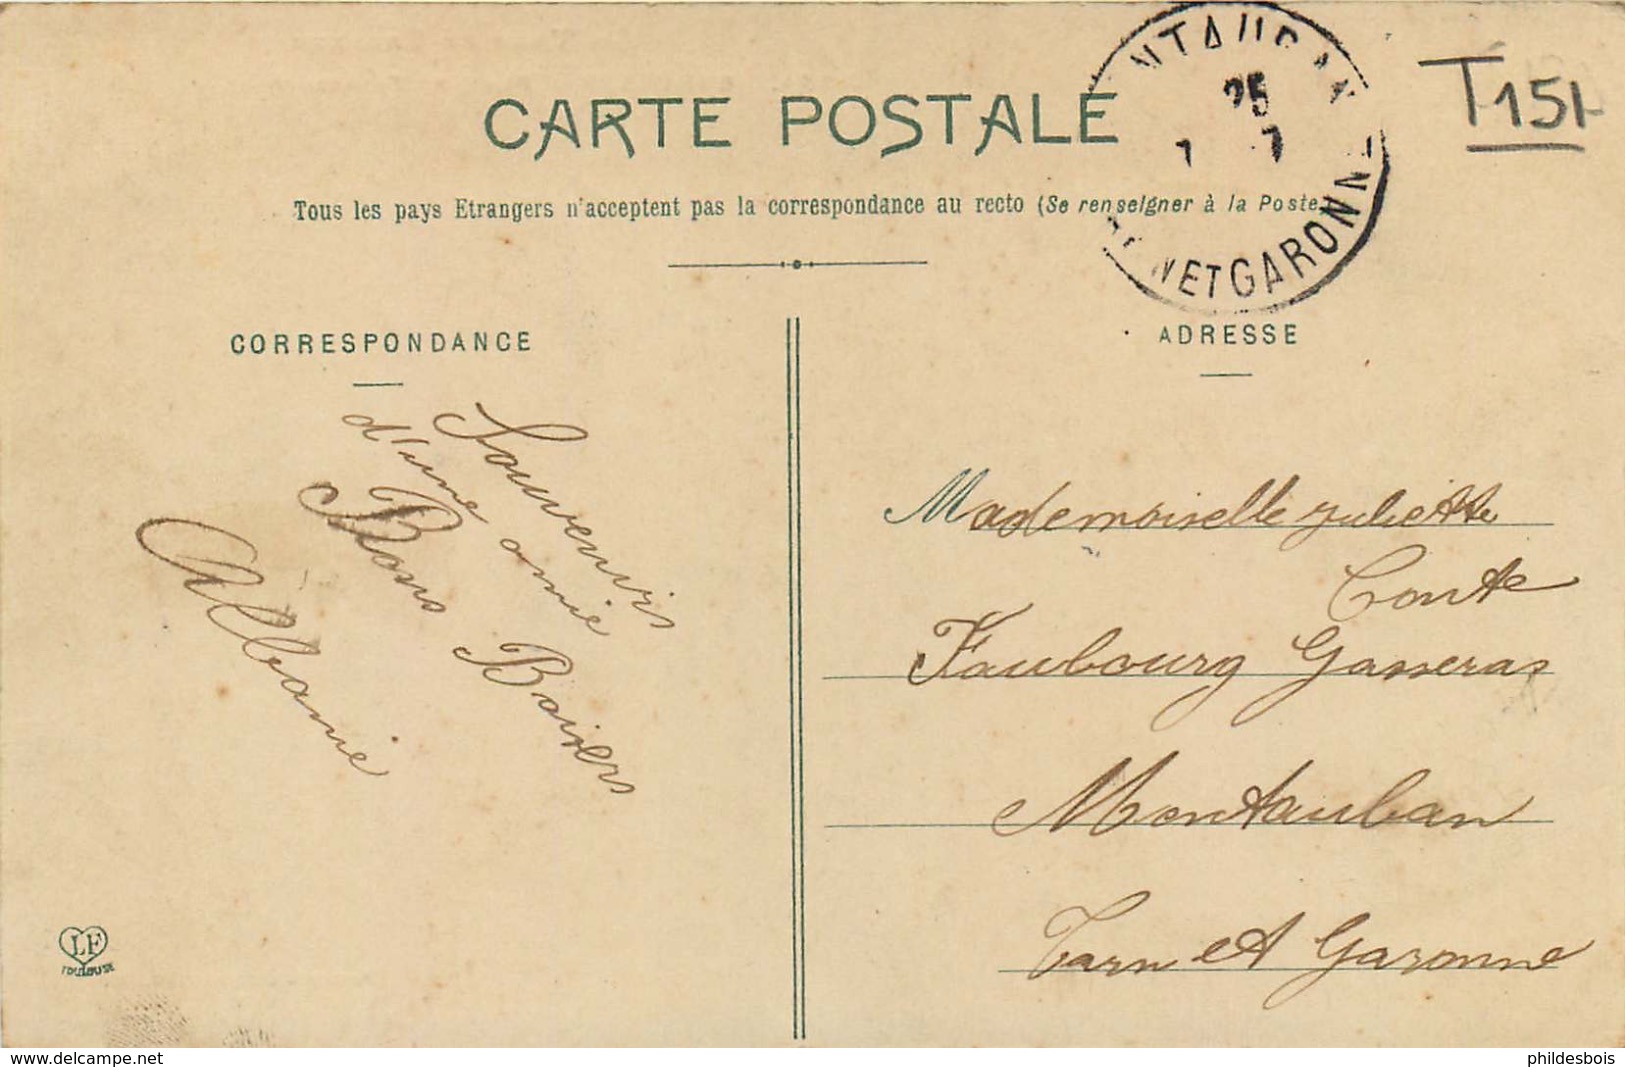 CARTE POSTALE
Tous les pays Etrangers n'acceptent pas la correspondance au recto (Se renseigner à la Poste
NTAUBAN
25
7
NETGARONNE
T151
CORRESPONDANCE
ADRESSE
Souvenirs
d'une amie
Bons Baisers
Albanie
Mademoiselle Juliette
Conte
Faubourg Gasseras
Montauban
Tarn et Garonne
LF
TOULOUSE
www.delcampe.net
phildesbois